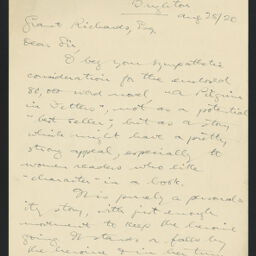 Brighton
Aug 25/20
Grant Richards, Esq.
Dear Sir,
I beg your sympathetic
consideration for the enclosed
80,000 word novel "A Pilgrim
in Fetters", not as a potential
"best seller", but as a story
which might have a pretty
strong appeal, especially to
women readers who like
"character" in a book.
It is purely a personal-
ity story, with just enough
movement to keep the heroine
going. It stands or falls by
the heroine & in her turn